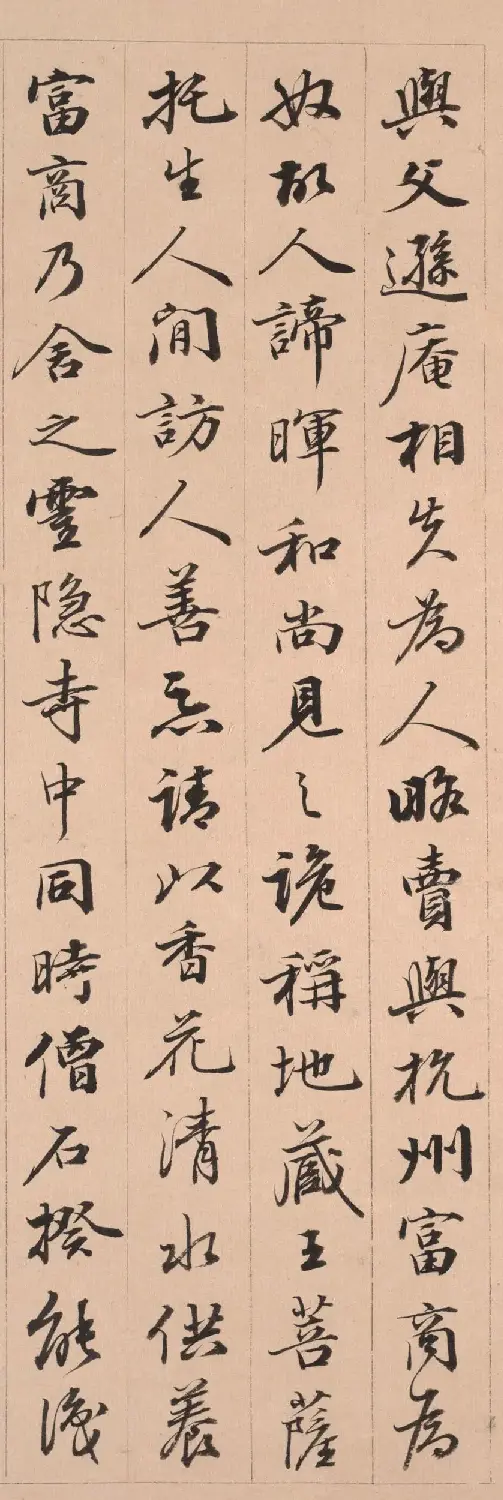 與父遜庵相失為人略賣與杭州富商為
奴故人諦暉和尚見之詭稱地藏王菩薩
托生人間訪人善惡請以香花清水供養
富商乃舍之靈隐寺中同時僧石揆能識